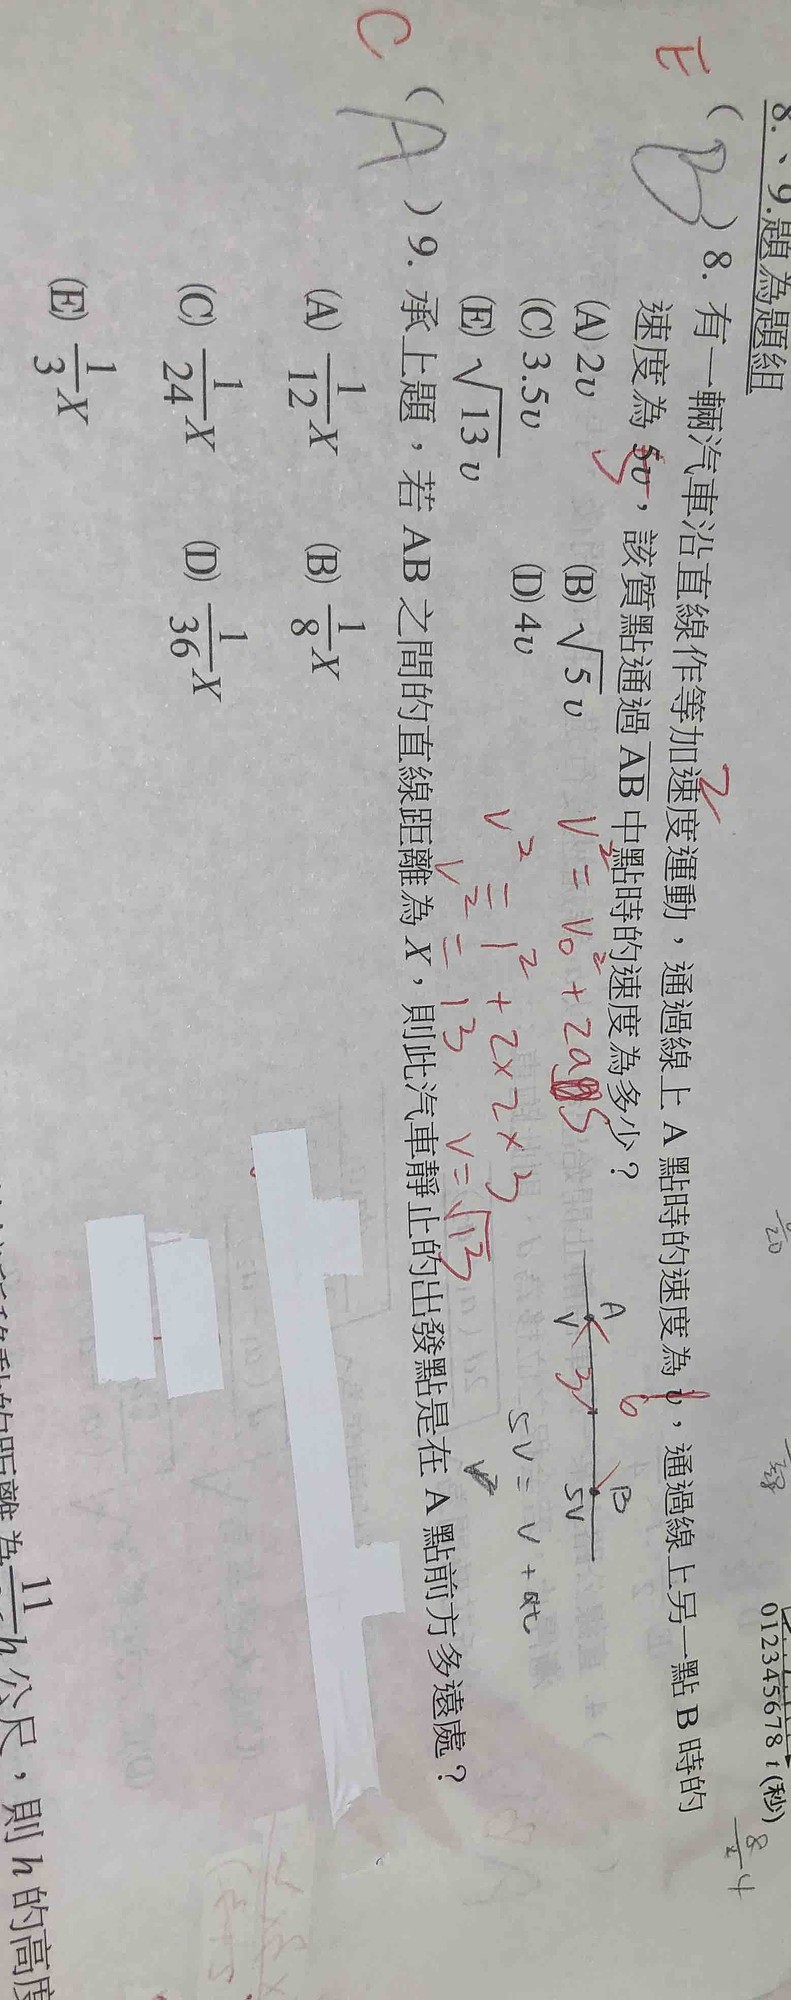 8.、9.題為題組
E
(B)8. 有一輛汽車沿直線作等加速度運動，通過線上 A 點時的速度為 v，通過線上另一點 B 時的
速度為 5v，該質點通過 AB 中點時的速度為多少？
(A) 2v (B) √5 v
(C) 3.5v (D) 4v
(E) √13 v
C
(A)9. 承上題，若 AB 之間的直線距離為 X，則此汽車靜止的出發點是在 A 點前方多遠處？
(A) 1/12 X (B) 1/8 X
(C) 1/24 X (D) 1/36 X
(E) 1/3 X
012345678 t (秒)
8/2 4
2
5
6
A B
V 3 5V
V² = V₀² + 2aS
V² = 1² + 2×2×3
V² = 13 V = √13
5V = V + at
V²
距離為 11 h 公尺，則 h 的高度